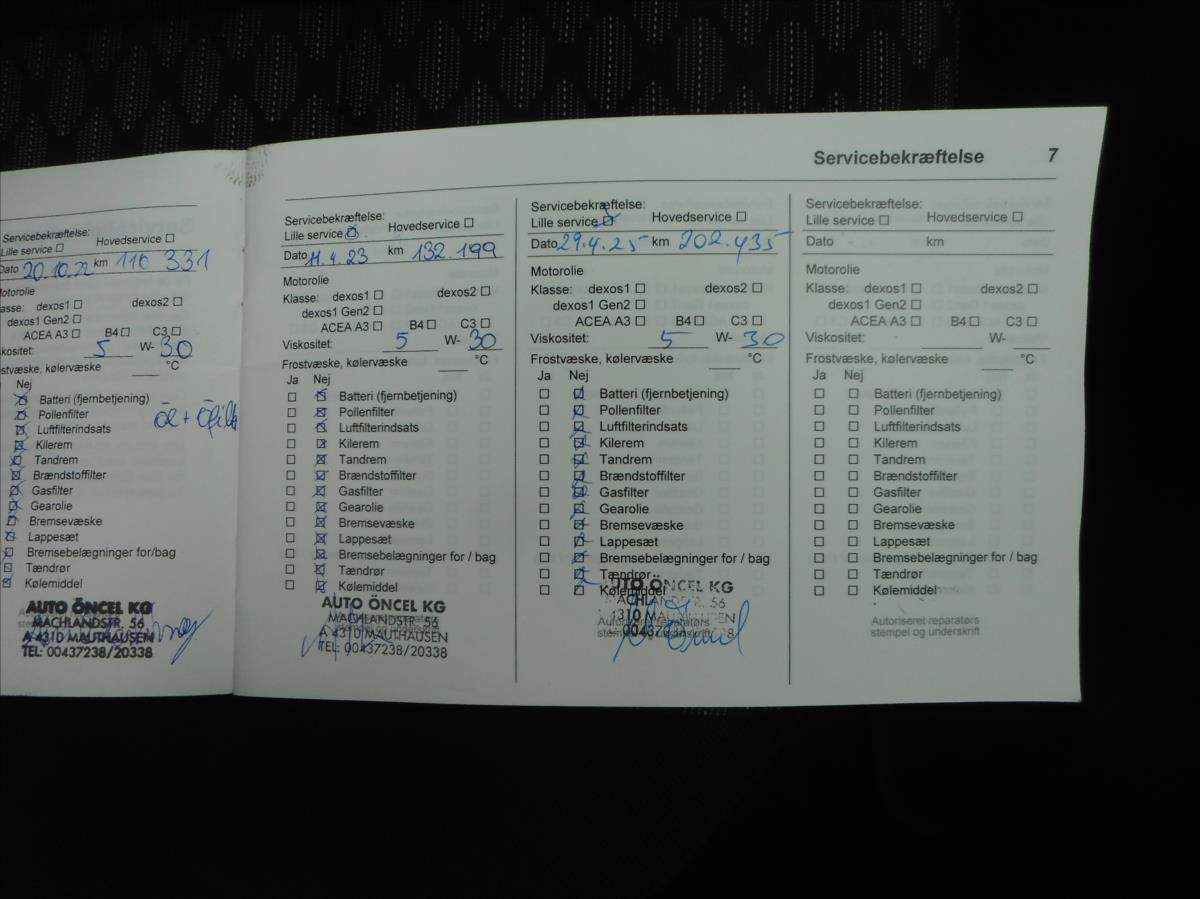 Servicebekræftelse 7
Servicebekræftelse:
Lille service ☐ Hovedservice ☐
Dato 20.10.22 km 110 331
Motorolie
asse: dexos1 ☐ dexos2 ☐
dexos1 Gen2 ☐
ACEA A3 ☐ B4 ☐ C3 ☐
skositet: 5 W- 30
stvæske, kølervæske °C
Nej
☒ Batteri (fjernbetjening)
☒ Pollenfilter
☒ Luftfilterindsats
☒ Kilerem
☒ Tandrem
☒ Brændstoffilter
☒ Gasfilter
☒ Gearolie
☒ Bremsevæske
☒ Lappesæt
☒ Bremsebelægninger for/bag
☒ Tændrør
☒ Kølemiddel
AUTO ÖNCEL KG
MACHLANDSTR. 56
A 4310 MAUTHAUSEN
TEL: 00437238/20338
Servicebekræftelse:
Lille service ☒ Hovedservice ☐
Dato 11.4.23 km 132.199
Motorolie
Klasse: dexos1 ☐ dexos2 ☐
dexos1 Gen2 ☐
ACEA A3 ☐ B4 ☐ C3 ☐
Viskositet: 5 W- 30
Frostvæske, kølervæske °C
Ja Nej
☐ ☒ Batteri (fjernbetjening)
☐ ☒ Pollenfilter
☐ ☒ Luftfilterindsats
☐ ☒ Kilerem
☐ ☒ Tandrem
☐ ☒ Brændstoffilter
☐ ☒ Gasfilter
☐ ☒ Gearolie
☐ ☒ Bremsevæske
☐ ☒ Lappesæt
☐ ☒ Bremsebelægninger for / bag
☐ ☒ Tændrør
☐ ☒ Kølemiddel
AUTO ÖNCEL KG
MACHLANDSTR. 56
A 4310 MAUTHAUSEN
TEL: 00437238/20338
Servicebekræftelse:
Lille service ☒ Hovedservice ☐
Dato 29.4.25 km 202.435
Motorolie
Klasse: dexos1 ☐ dexos2 ☐
dexos1 Gen2 ☐
ACEA A3 ☐ B4 ☐ C3 ☐
Viskositet: 5 W- 30
Frostvæske, kølervæske °C
Ja Nej
☐ ☒ Batteri (fjernbetjening)
☐ ☒ Pollenfilter
☐ ☒ Luftfilterindsats
☐ ☒ Kilerem
☐ ☒ Tandrem
☐ ☒ Brændstoffilter
☐ ☒ Gasfilter
☐ ☒ Gearolie
☐ ☒ Bremsevæske
☐ ☒ Lappesæt
☐ ☒ Bremsebelægninger for / bag
☐ ☒ Tændrør
☐ ☒ Kølemiddel
ÖNCEL KG
56
4310
Servicebekræftelse:
Lille service ☐ Hovedservice ☐
Dato km
Motorolie
Klasse: dexos1 ☐ dexos2 ☐
dexos1 Gen2 ☐
ACEA A3 ☐ B4 ☐ C3 ☐
Viskositet: W-
Frostvæske, kølervæske °C
Ja Nej
☐ ☐ Batteri (fjernbetjening)
☐ ☐ Pollenfilter
☐ ☐ Luftfilterindsats
☐ ☐ Kilerem
☐ ☐ Tandrem
☐ ☐ Brændstoffilter
☐ ☐ Gasfilter
☐ ☐ Gearolie
☐ ☐ Bremsevæske
☐ ☐ Lappesæt
☐ ☐ Bremsebelægninger for / bag
☐ ☐ Tændrør
☐ ☐ Kølemiddel
Autoriseret reparatørs
stempel og underskrift